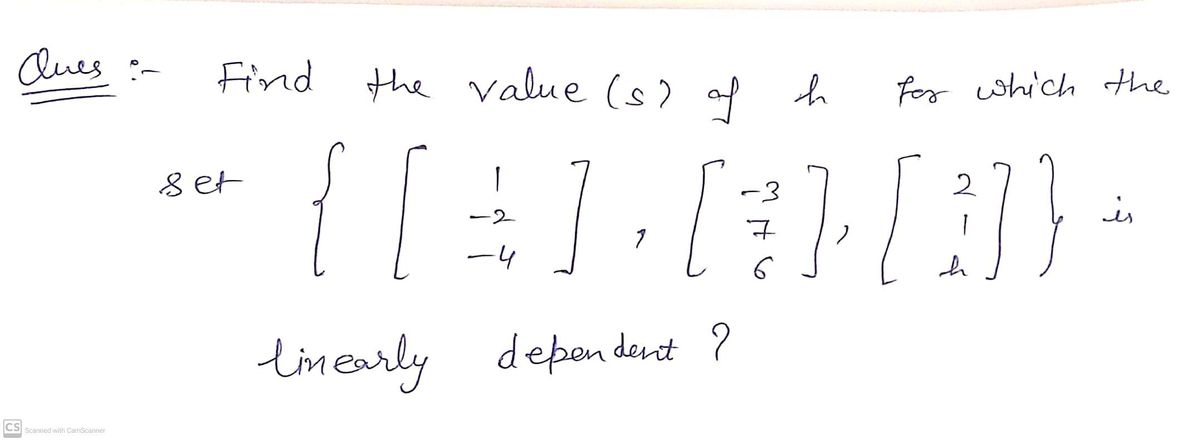 Ques :- Find the value (s) of h for which the
set { [ 1 -2 -4 ] , [ -3 7 6 ] , [ 2 1 h ] } is
linearly dependent ?
CS Scanned with CamScanner